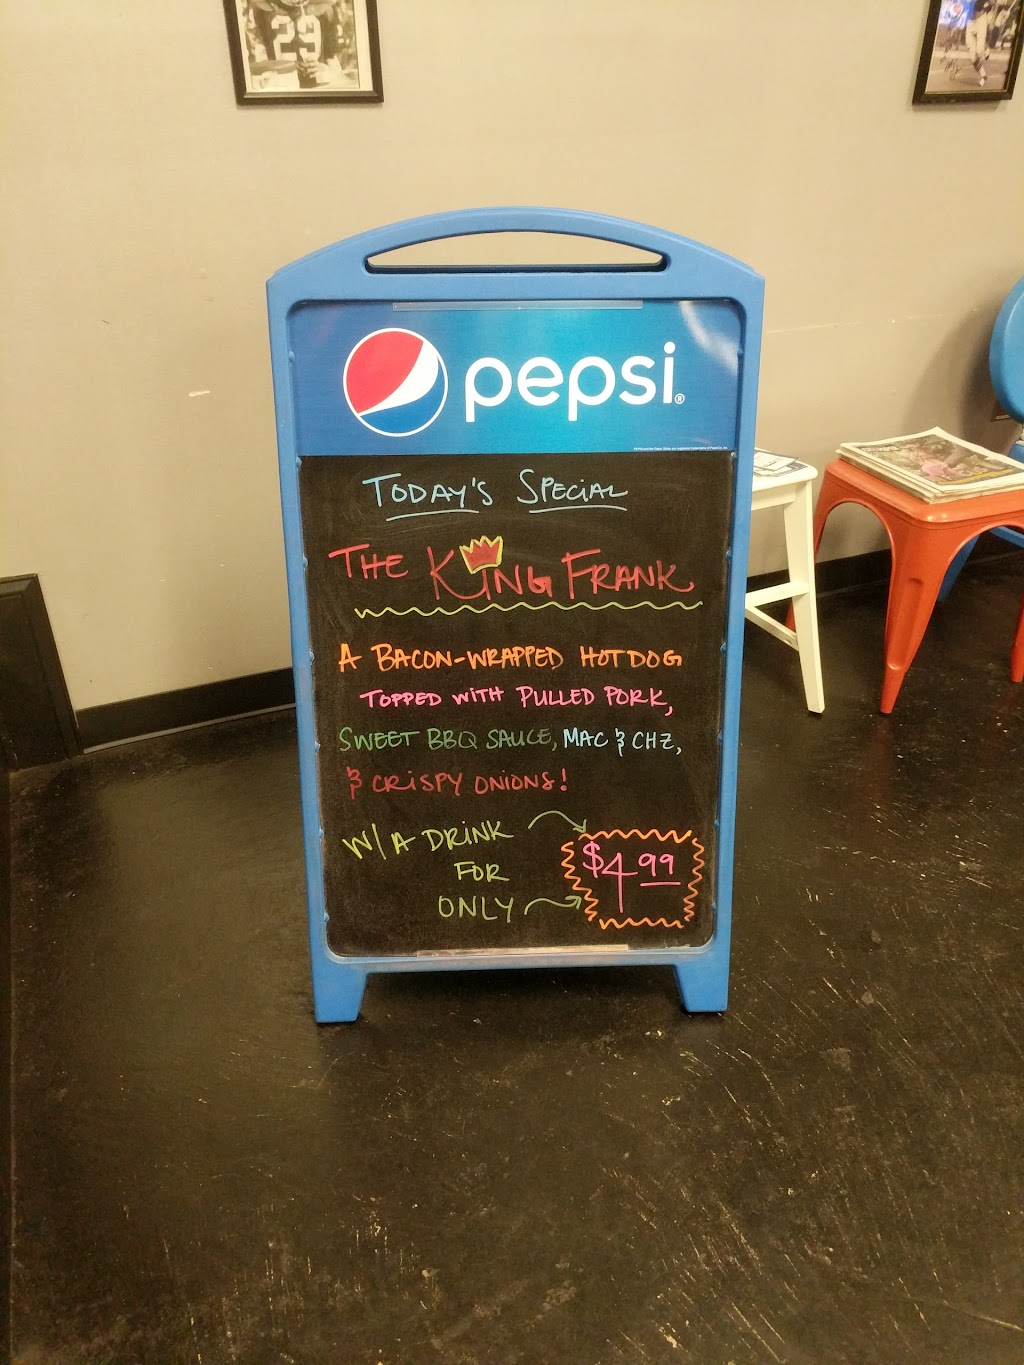 29
pepsi®
TODAY'S SPECIAL
THE KING FRANK
A BACON-WRAPPED HOTDOG
TOPPED WITH PULLED PORK,
SWEET BBQ SAUCE, MAC & CHZ,
& CRISPY ONIONS!
W/A DRINK
FOR
ONLY
$4.99